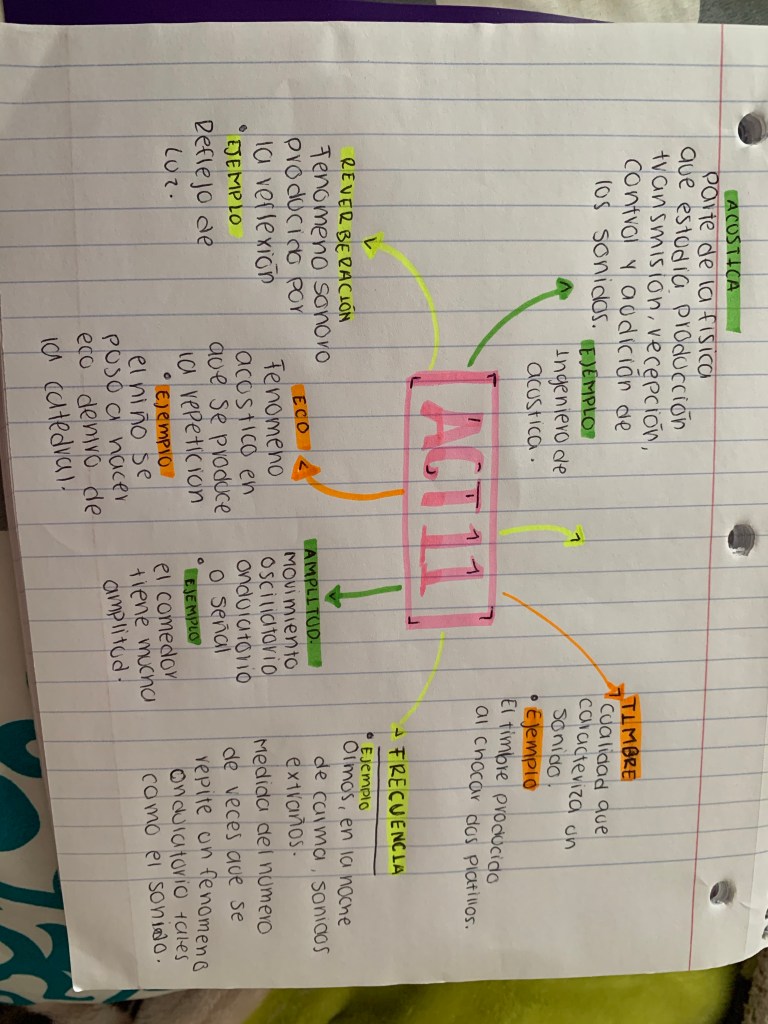 ACUSTICA
Parte de la física
que estudia producción
transmisión, recepción,
control y audición de
los sonidos.
EJEMPLO
Ingeniero de
acustica.
TIMBRE
cualidad que
caracteriza un
sonido.
• Ejemplo
El timbre producido
al chocar dos platillos.
ACT 11
REVERBERACIÓN
Fenomeno sonoro
producido por
la reflexión
• EJEMPLO
Reflejo de
luz.
ECO
Fenomeno
acustico en
que se produce
la repeticion
• Ejemplo
el niño se
puso a hacer
eco dentro de
la catedral.
AMPLITUD.
movimiento
oscilatorio
ondulatorio
o señal
• EJEMPLO
el comedor
tiene mucha
amplitud.
FRECUENCIA
• Ejemplo
Oimos, en la noche
de calma, sonidos
extraños.
Medida del numero
de veces que se
repite un fenomeno
ondulatorio tales
como el sonido.